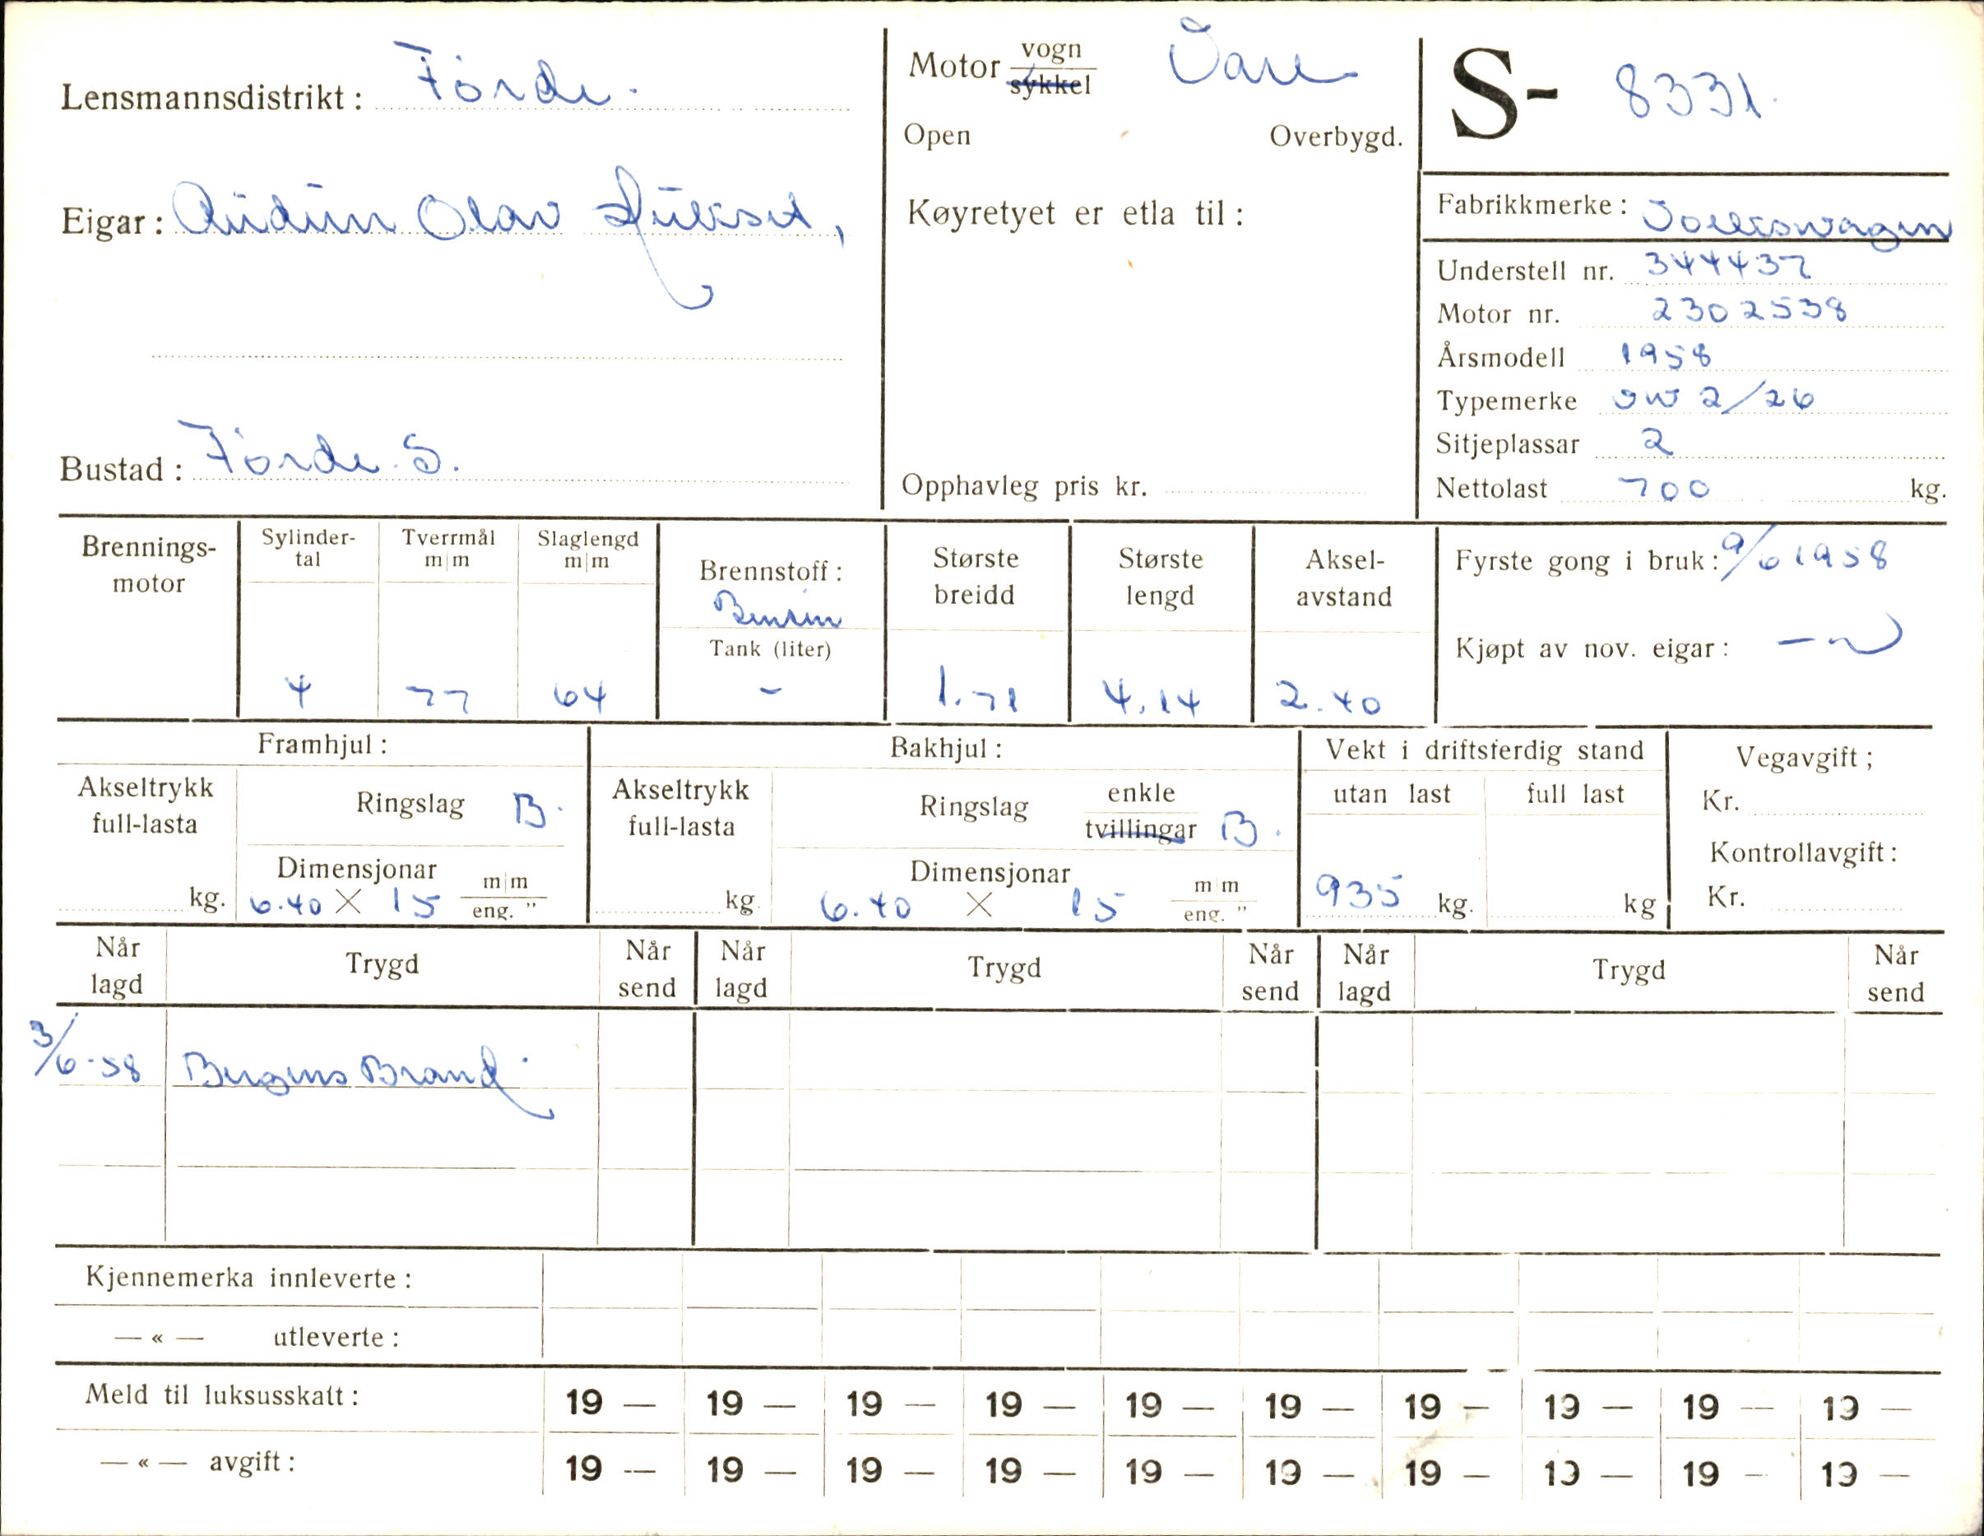 Lensmannsdistrikt: Förde.
Motor vogn/sykkel Vare
S- 8331.
Open Overbygd.
Eigar: Audun Olav
Køyretyet er etla til:
Fabrikkmerke: Volkswagen
Understell nr. 344437
Motor nr. 2302538
Årsmodell 1958
Typemerke VW 2/26
Sitjeplassar 2
Bustad: Förde. S.
Opphavleg pris kr.
Nettolast 700 kg.
Brennings-
motor
Sylinder-
tal
4
Tverrmål
m|m
77
Slaglengd
m|m
64
Brennstoff:
Bensin
Tank (liter)
-
Største
breidd
1.71
Største
lengd
4.14
Aksel-
avstand
2.40
Fyrste gong i bruk: 9/6 1958
Kjøpt av nov. eigar: — " —
Framhjul:
Akseltrykk
full-lasta
kg.
Ringslag B.
Dimensjonar
6.40 X 15 m|m
eng. "
Bakhjul:
Akseltrykk
full-lasta
kg.
Ringslag enkle
tvillingar B.
Dimensjonar
6.40 X 15 m|m
eng. "
Vekt i driftsferdig stand
utan last full last
935 kg. kg
Vegavgift;
Kr.
Kontrollavgift:
Kr.
Når
lagd
Trygd
Når
send
Når
lagd
Trygd
Når
send
Når
lagd
Trygd
Når
send
3/6-58 Bergens Brand
Kjennemerka innleverte:
— « — utleverte:
Meld til luksusskatt: 19 — 19 — 19 — 19 — 19 — 19 — 19 — 19 — 19 — 19 —
— « — avgift: 19 — 19 — 19 — 19 — 19 — 19 — 19 — 19 — 19 — 19 —